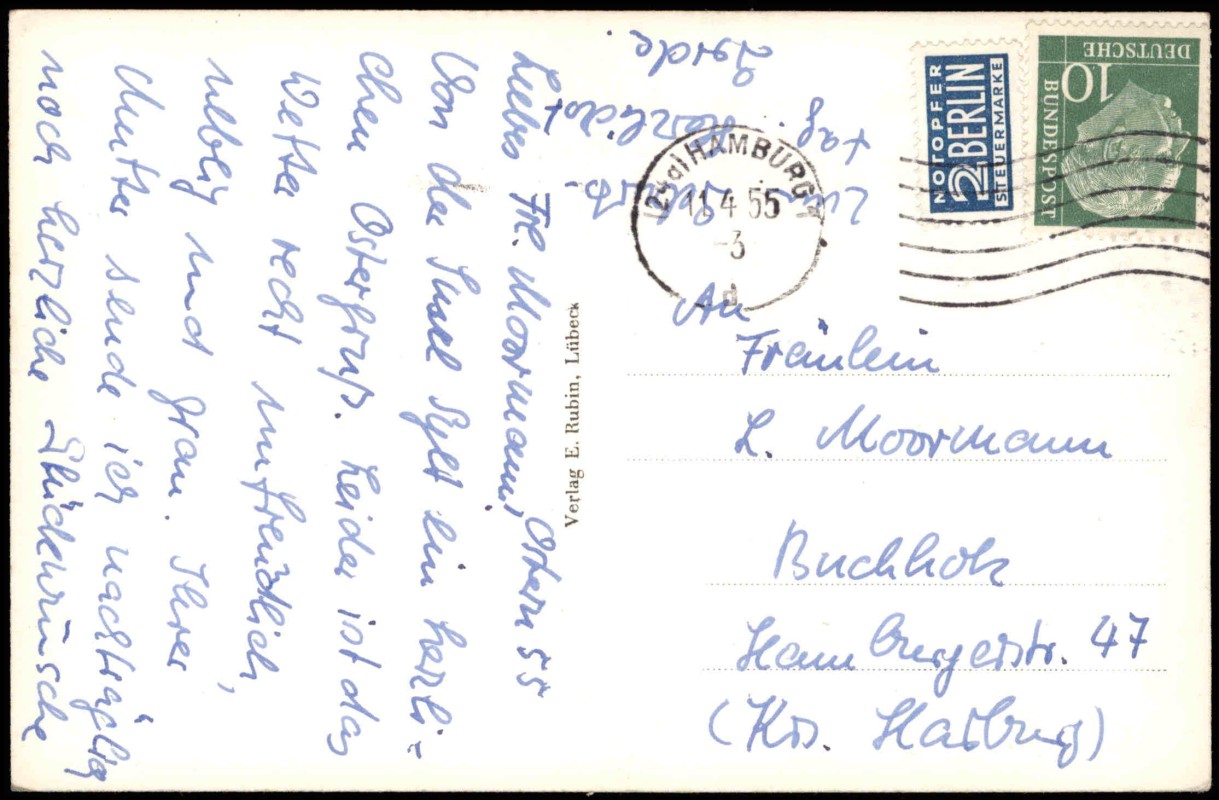 Ostern 55
Liebes Frl. Moormann,
Von der Insel Sylt ein herzli=
chen Ostergruß. Leider ist das
Wetter recht unfreundlich,
neblig und grau. Ihrer
Mutter sende ich nachträglich
noch herzliche Glückwünsche
zum Geburts-
tag.
Herzlichst
Verlag E. Rubin, Lübeck
NOTOPFER
2 BERLIN
STEUERMARKE
DEUTSCHE
BUNDESPOST
10
HAMBURG
11.4.55
-3
d
An
Fräulein
L. Moormann
Buchholz
Hamburgerstr. 47
(Krs. Harburg)